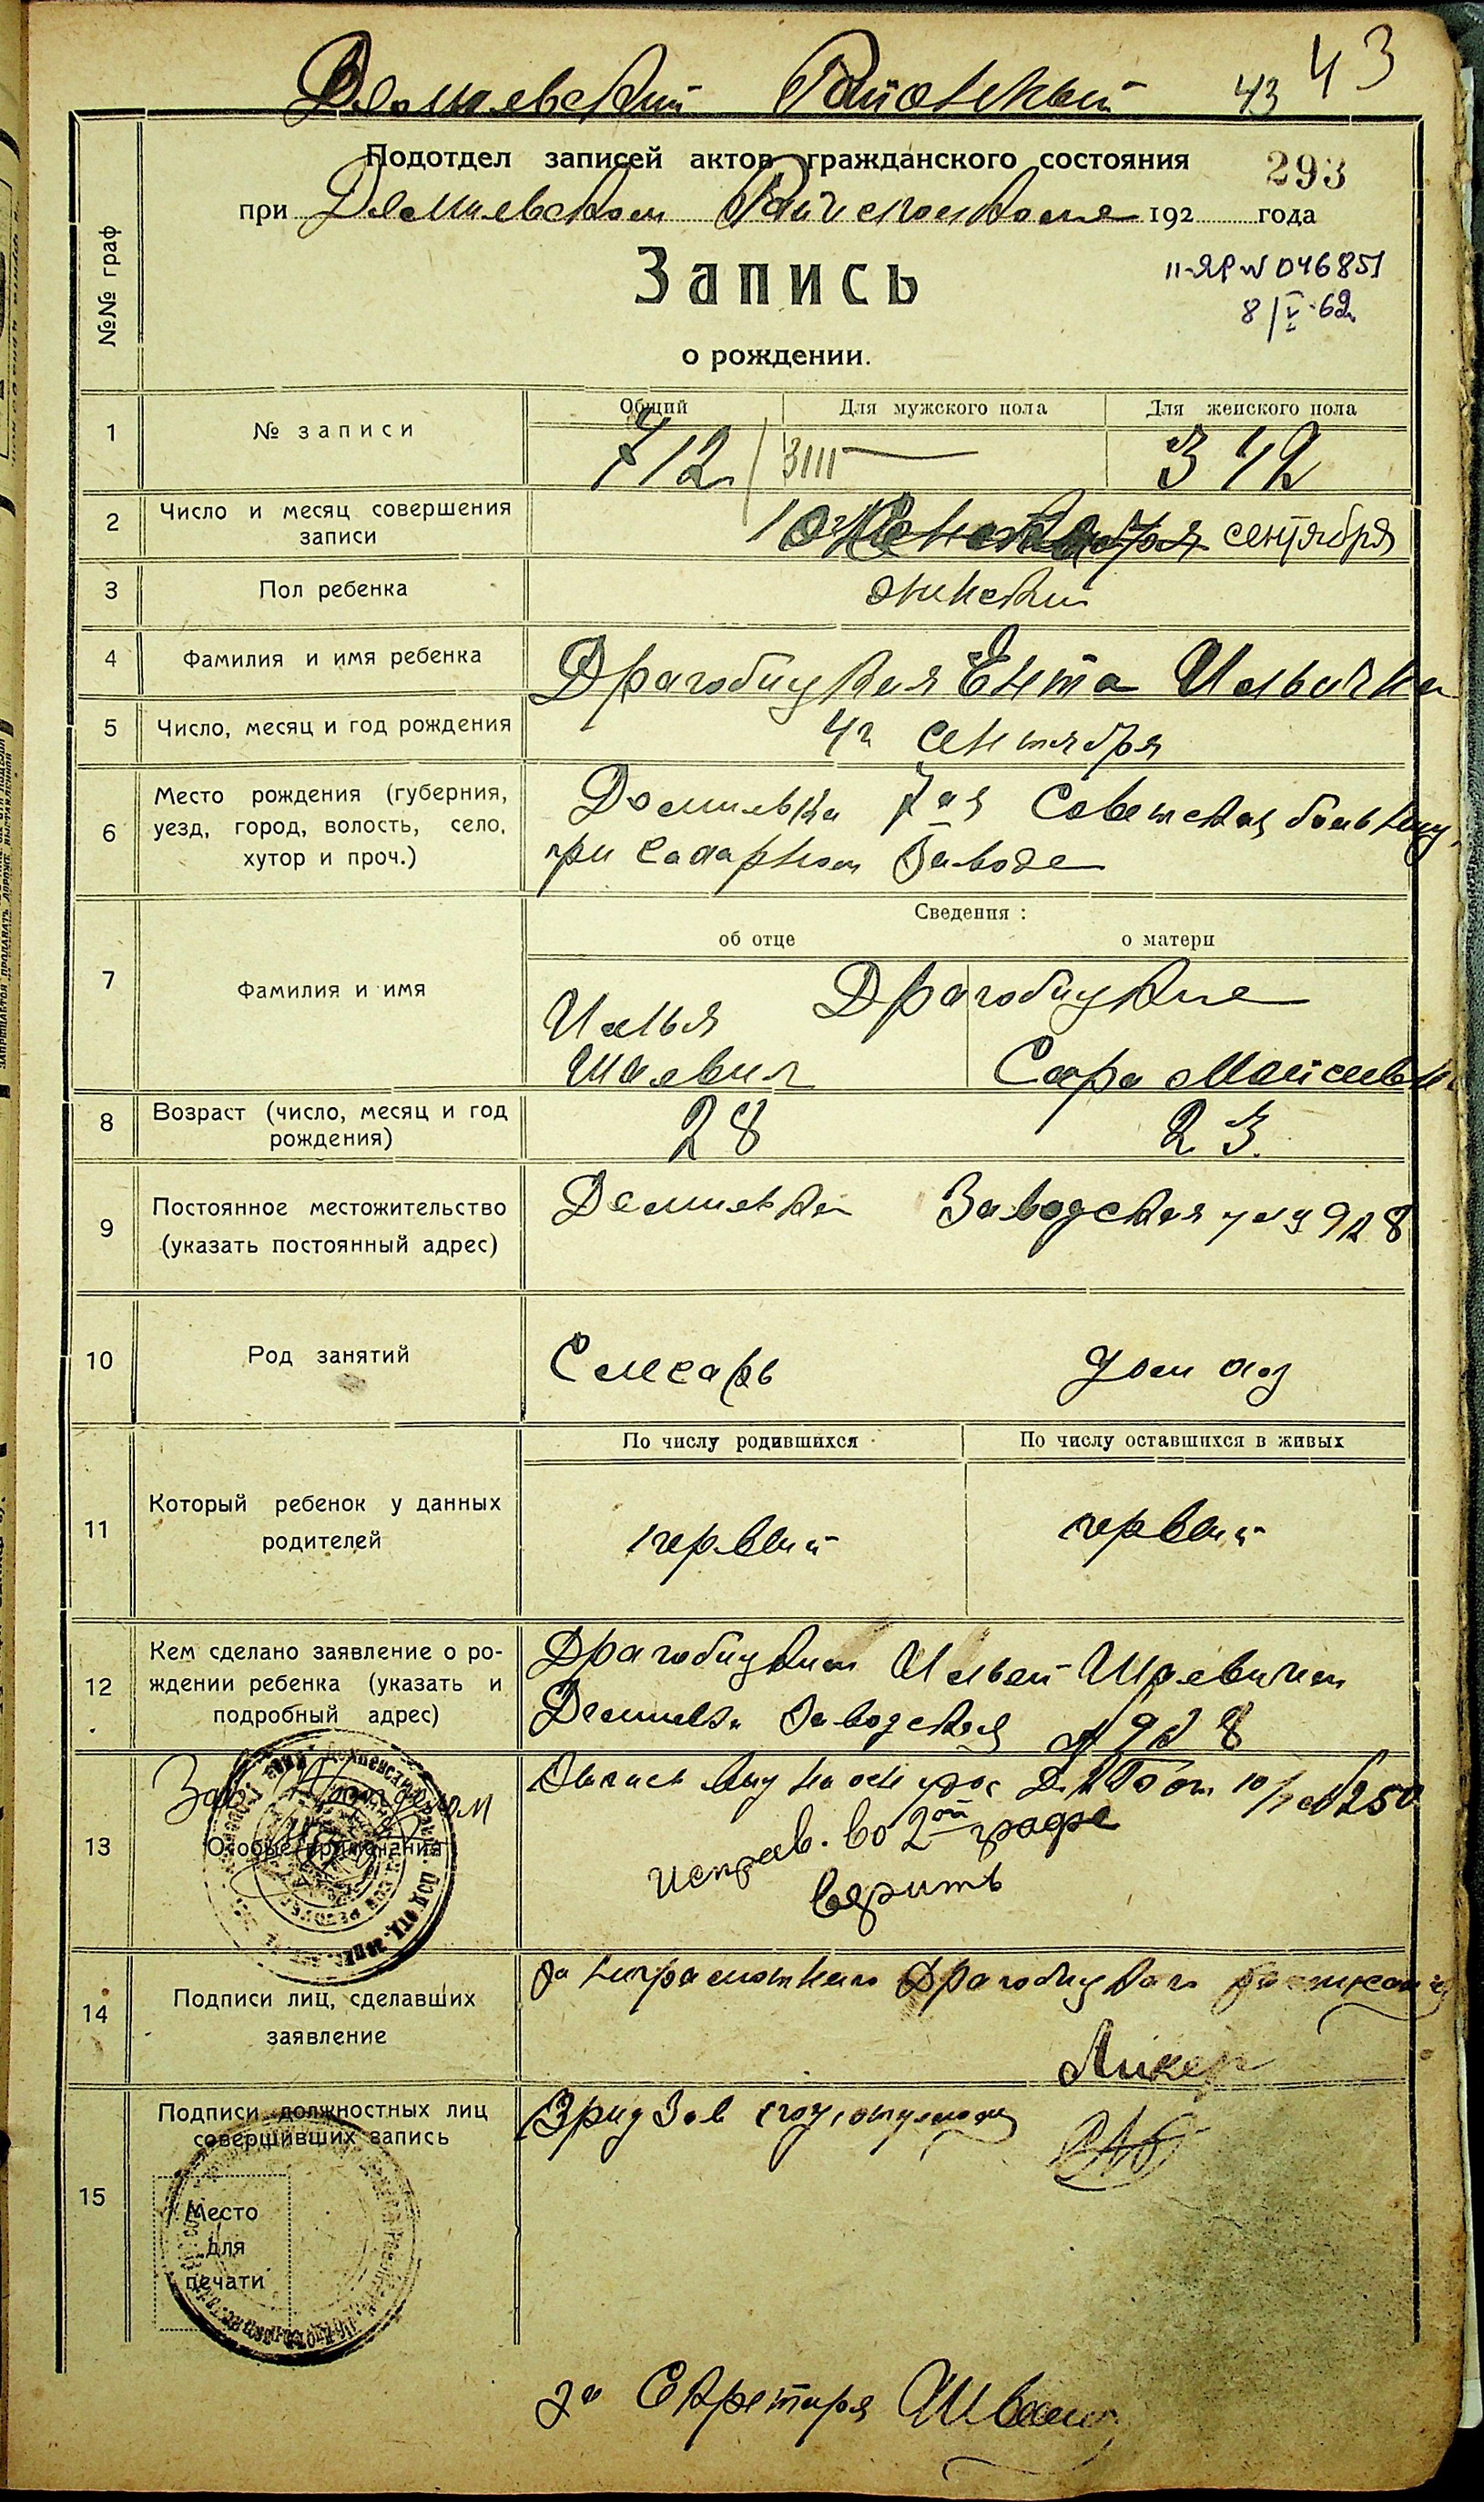 43 43
Демиевский Районный
Подотдел записей актов гражданского состояния
293
при Демиевском Райисполкоме 192 года
№№ граф
Запись
о рождении.
II-ЯР № 046851
8/V-62
1 № записи
Общий Для мужского пола Для женского пола
712 342
2 Число и месяц совершения
записи
10 сентября
3 Пол ребенка
женский
4 Фамилия и имя ребенка
Драгобицкая Ента Ильична
5 Число, месяц и год рождения
4го сентября
6 Место рождения (губерния,
уезд, город, волость, село,
хутор и проч.)
Демиевка 7ая Советская больниц
при сахарном Заводе
Сведения :
об отце о матери
7 Фамилия и имя
Драгобицкие
Илья
Шаевич Сара Мойсеевн
8 Возраст (число, месяц и год
рождения)
28 23
9 Постоянное местожительство
(указать постоянный адрес)
Демиевка Заводская 8
10 Род занятий
Слесарь дом хоз
11 Который ребенок у данных
родителей
По числу родившихся По числу оставшихся в живых
первый первый
12 Кем сделано заявление о ро-
ждении ребенка (указать и
подробный адрес)
Драгобицким Ильей Шаевичем
Демиевка Заводская 8
13 Особые примечания
Зав.
250
исправ. во 2ой графе
верить
14 Подписи лиц, сделавших
заявление
за неграмотного Драгобицкого
Ликер
15 Подписи должностных лиц
совершивших запись
Место
для
печати
за Секретаря